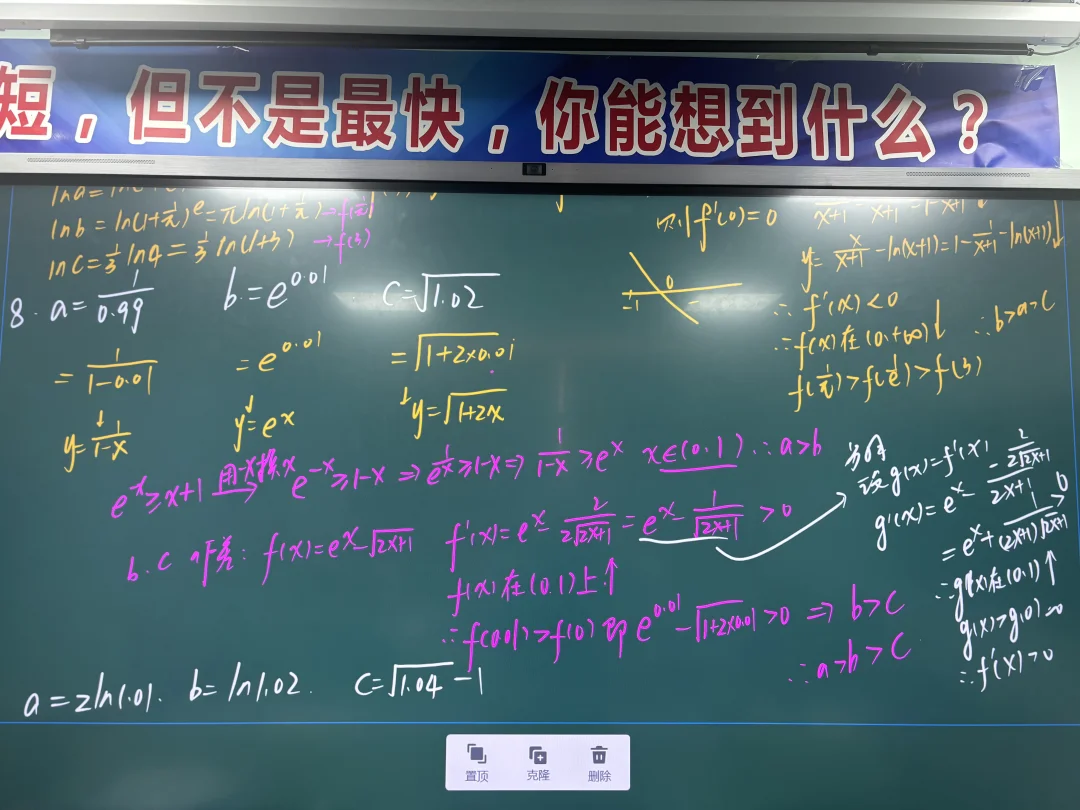 短，但不是最快，你能想到什么？
ln b = ln(1+1/π)^e = π ln(1+1/π) → f(1/π)
ln c = 1/3 ln 4 = 1/3 ln(1+3) → f(3)
则 f'(0)=0
y = x/(x+1) - ln(x+1) = 1 - 1/(x+1) - ln(x+1) ↓
0
-1
∴ f'(x)<0
∴ f(x)在(0,+∞)↓ ∴ b>a>c
f(1/π)>f(1/e)>f(3)
8. a = 1/0.99 b = e^0.01 c = √1.02
= 1/(1-0.01) = e^0.01 = √(1+2×0.01)
↓ y = 1/(1-x) ↓ y = e^x ↓ y = √(1+2x)
e^x ≥ x+1 用-x换x → e^-x ≥ 1-x ⇒ 1/e^x ≥ 1-x ⇒ 1/(1-x) ≥ e^x x∈(0,1) ∴ a>b
b.c 作差: f(x) = e^x - √(2x+1) f'(x) = e^x - 2/(2√(2x+1)) = e^x - 1/√(2x+1) > 0
f(x)在(0,1)上↑
∴ f(0.01)>f(0) 即 e^0.01 - √(1+2×0.01) > 0 ⇒ b>c
∴ a>b>c
设g(x)=f'(x)
g'(x) = e^x - (2/(2√(2x+1)))/(2x+1)
= e^x + 1/((2x+1)√(2x+1)) > 0
∴ g(x)在(0,1)↑
g(x)>g(0)=0
∴ f'(x)>0
a = 2ln1.01. b = ln1.02. c = √1.04 - 1
置顶 克隆 删除